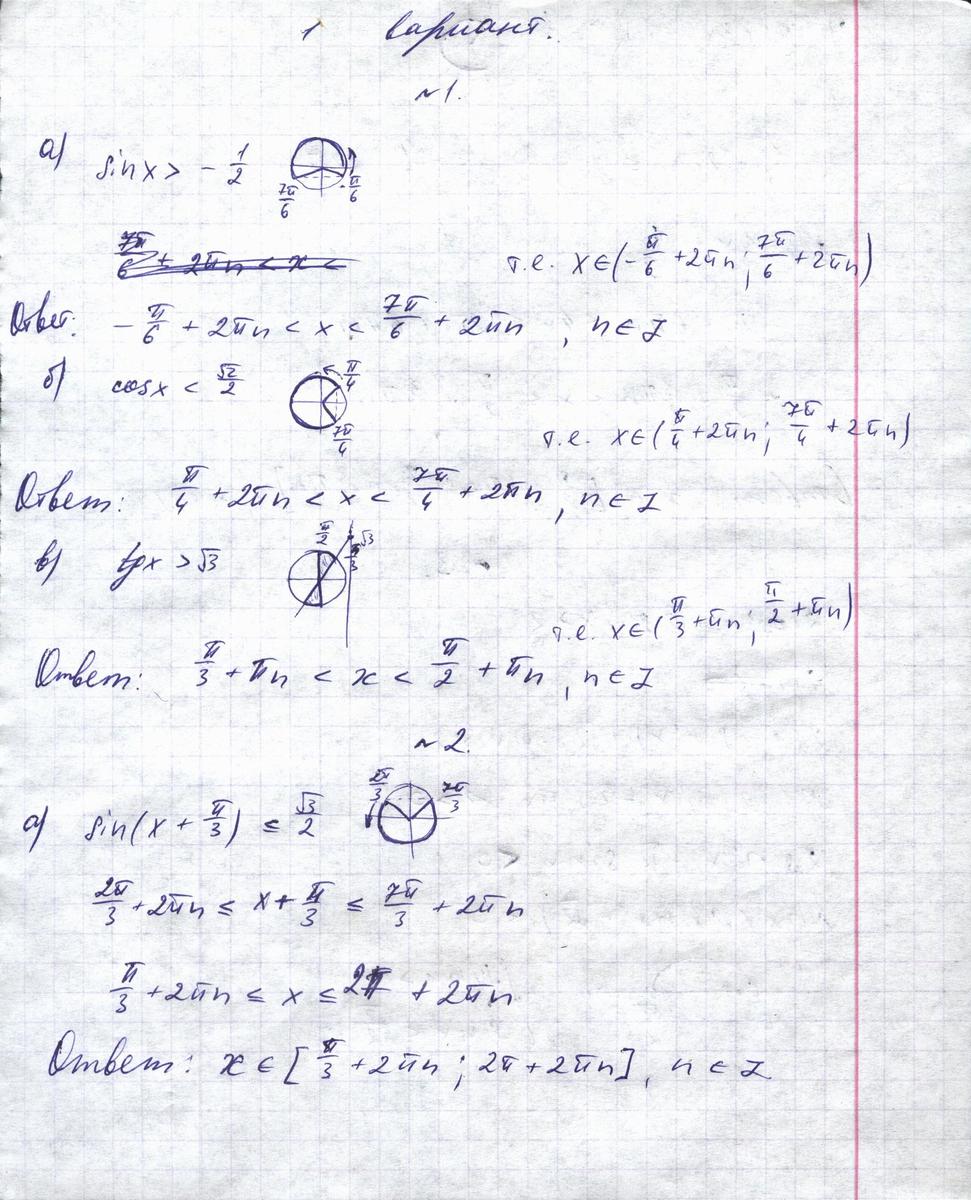 1 вариант.
№1.
а) sin x > - 1/2 7π/6 -π/6
7π/6 + 2πn < x <
т.е. x ∈ (-π/6 + 2πn ; 7π/6 + 2πn)
Ответ: - π/6 + 2πn < x < 7π/6 + 2πn , n ∈ Z
б) cos x < √2/2 π/4 7π/4
т.е. x ∈ (π/4 + 2πn ; 7π/4 + 2πn)
Ответ: π/4 + 2πn < x < 7π/4 + 2πn , n ∈ Z
в) tg x > √3 π/2 √3 π/3
т.е. x ∈ (π/3 + πn ; π/2 + πn)
Ответ: π/3 + πn < x < π/2 + πn , n ∈ Z
№2.
а) sin(x + π/3) ≤ √3/2 2π/3 7π/3
2π/3 + 2πn ≤ x + π/3 ≤ 7π/3 + 2πn
π/3 + 2πn ≤ x ≤ 2π + 2πn
Ответ: x ∈ [π/3 + 2πn ; 2π + 2πn] , n ∈ Z